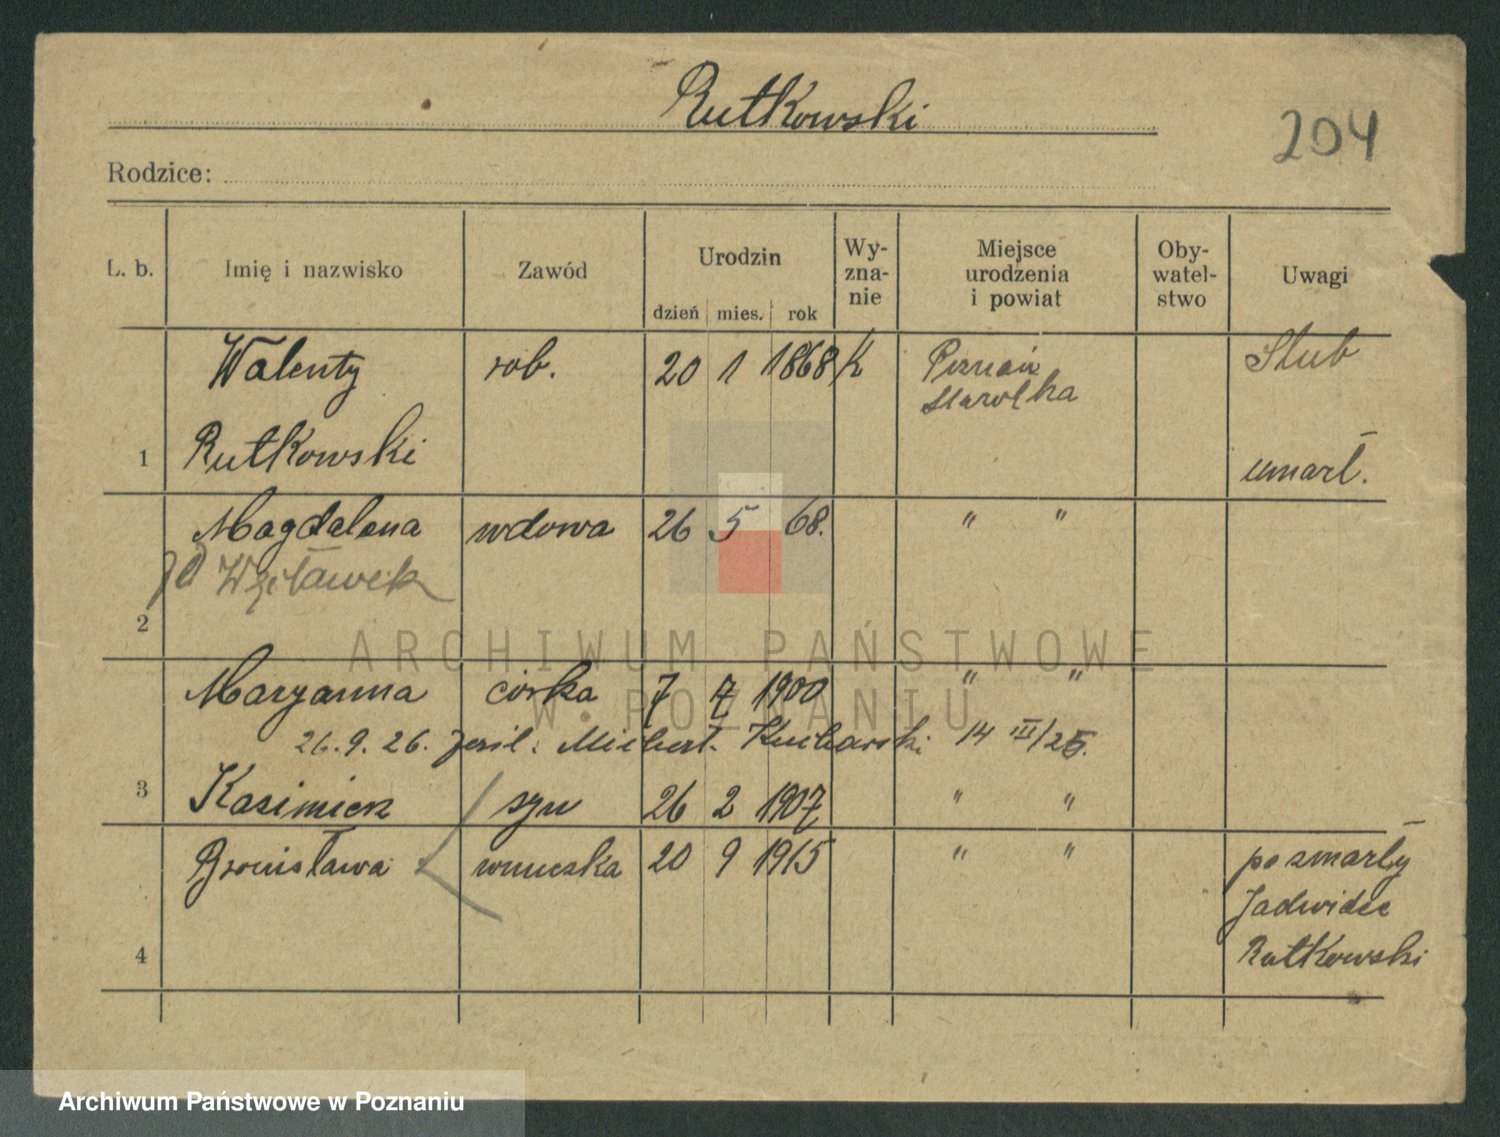 Rutkowski
204
Rodzice:
L. b. Imię i nazwisko Zawód Urodzin dzień mies. rok Wy-zna-nie Miejsce urodzenia i powiat Oby-watel-stwo Uwagi
Walenty rob. 20 1 1868 k Poznań Slub
Starołka
1 Rutkowski umarł.
Magdalena wdowa 26 5 68. " "
2
Maryanna córka 7 7 1900 " "
26.9.26. Kucharski 14 III/25.
3 Kasimierz syn 26 2 1907 " "
Bronisława wnuczka 20 9 1915 " " po zmarły
Jadwidze
4 Rutkowski
ARCHIWUM PAŃSTWOWE
W POZNANIU
Archiwum Państwowe w Poznaniu